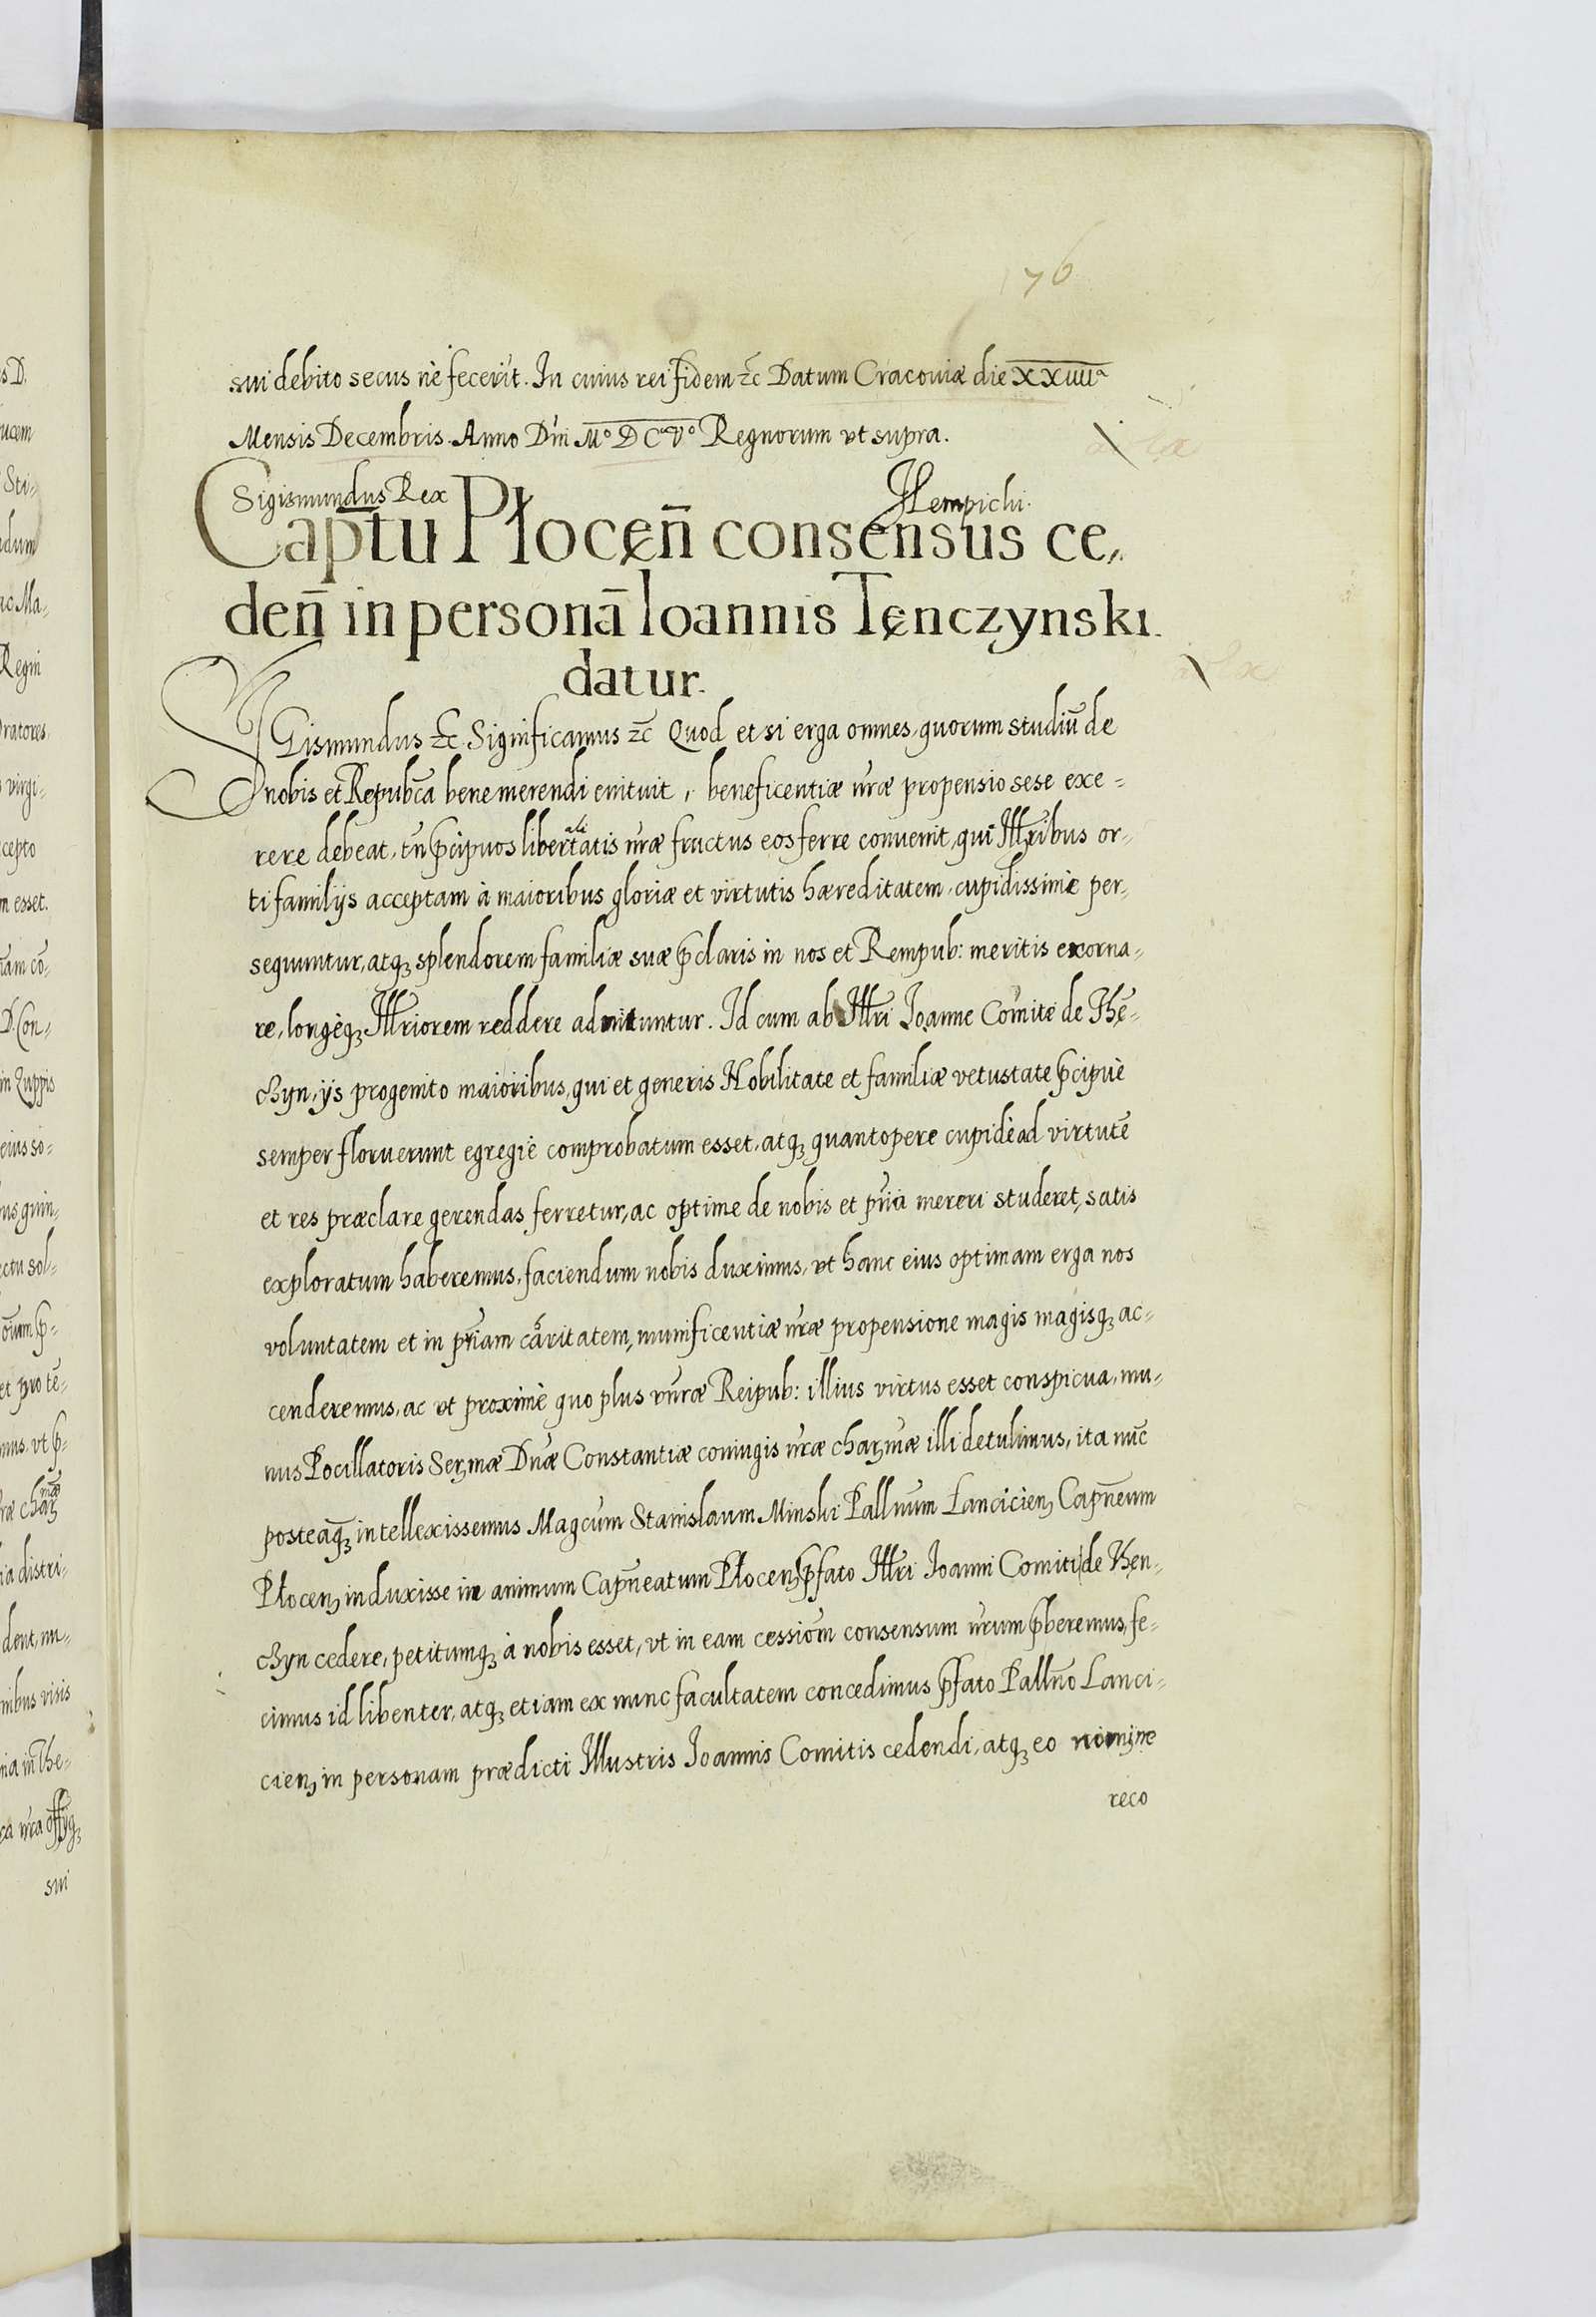 76
sui debito secus nē fecerit. In cuius rei fidem ꝛc̄ Datum Cracouiæ die XXIIIIᵃ
Mensis Decembris. Anno Dn̄i Mº DCº Vº Regnorum vt supra.
Sigismundus Rex HLempichi.
Cap̄tu Płocęn̄ consensus ce,,
den̄ in personā Ioannis Tęnczynski.
datur.
SIGismundus ꝛc̄. Significamus ꝛc̄ Quod et si erga omnes, quorum studiū de
nobis et Repub̄ca bene merendi enituit, beneficentiæ nr̄æ propensio sese exe-
rere debeat, tn̄ p̄cipuos libertalitatis nr̄æ fructus eos ferre conuenit, qui Ill̄ribus or-
ti familijs acceptam à maioribus gloriæ et virtutis hæreditatem, cupidissimè per-
sequuntur, atqꝫ splendorem familiæ suæ p̄claris in nos et Rempub: meritis exorna-
re, longèqꝫ Ill̄riorem reddere adnituntur. Id cum ab Ill̄ri Ioanne Comite de Thē-
chyn, ijs progenito maioribus, qui et generis Nobilitate et familiæ vetustate p̄cipuè
semper floruerunt egregiè comprobatum esset, atqꝫ quantopere cupidè ad virtutē
et res præclare gerendas ferretur, ac optime de nobis et pr̄ia mereri studeret, satis
exploratum haberemus, faciendum nobis duximus, vt hanc eius optimam erga nos
voluntatem et in pr̄iam cāritatem, munificentiæ nr̄æ propensione magis magisqꝫ ac-
cenderemus, ac vt proximè quo plus vnr̄æ Reipub: illius virtus esset conspicua, mu-
nus Pocillatoris Serꝫmæ Dn̄æ Constantiæ coniugis nr̄æ charꝫmæ illi detulimus, ita nūc
posteaqꝫ intellexissemus Magcum Stanislaum Minski Pall̄num Lancicienꝫ Cap̄neum
Płocenꝫ induxisse in animum Cap̄neatum Płocenꝫ p̄fato Ill̄ri Ioanni Comiti de Thęn-
chyn cedere, petitumqꝫ à nobis esset, vt in eam cessiōm consensum nr̄um p̄beremus, fe-
cimus id libenter, atqꝫ etiam ex nunc facultatem concedimus p̄fato Pall̄no Lanci-
cienꝫ in personam prædicti Illustris Ioannis Comitis cedendi, atqꝫ eo nomine
reco